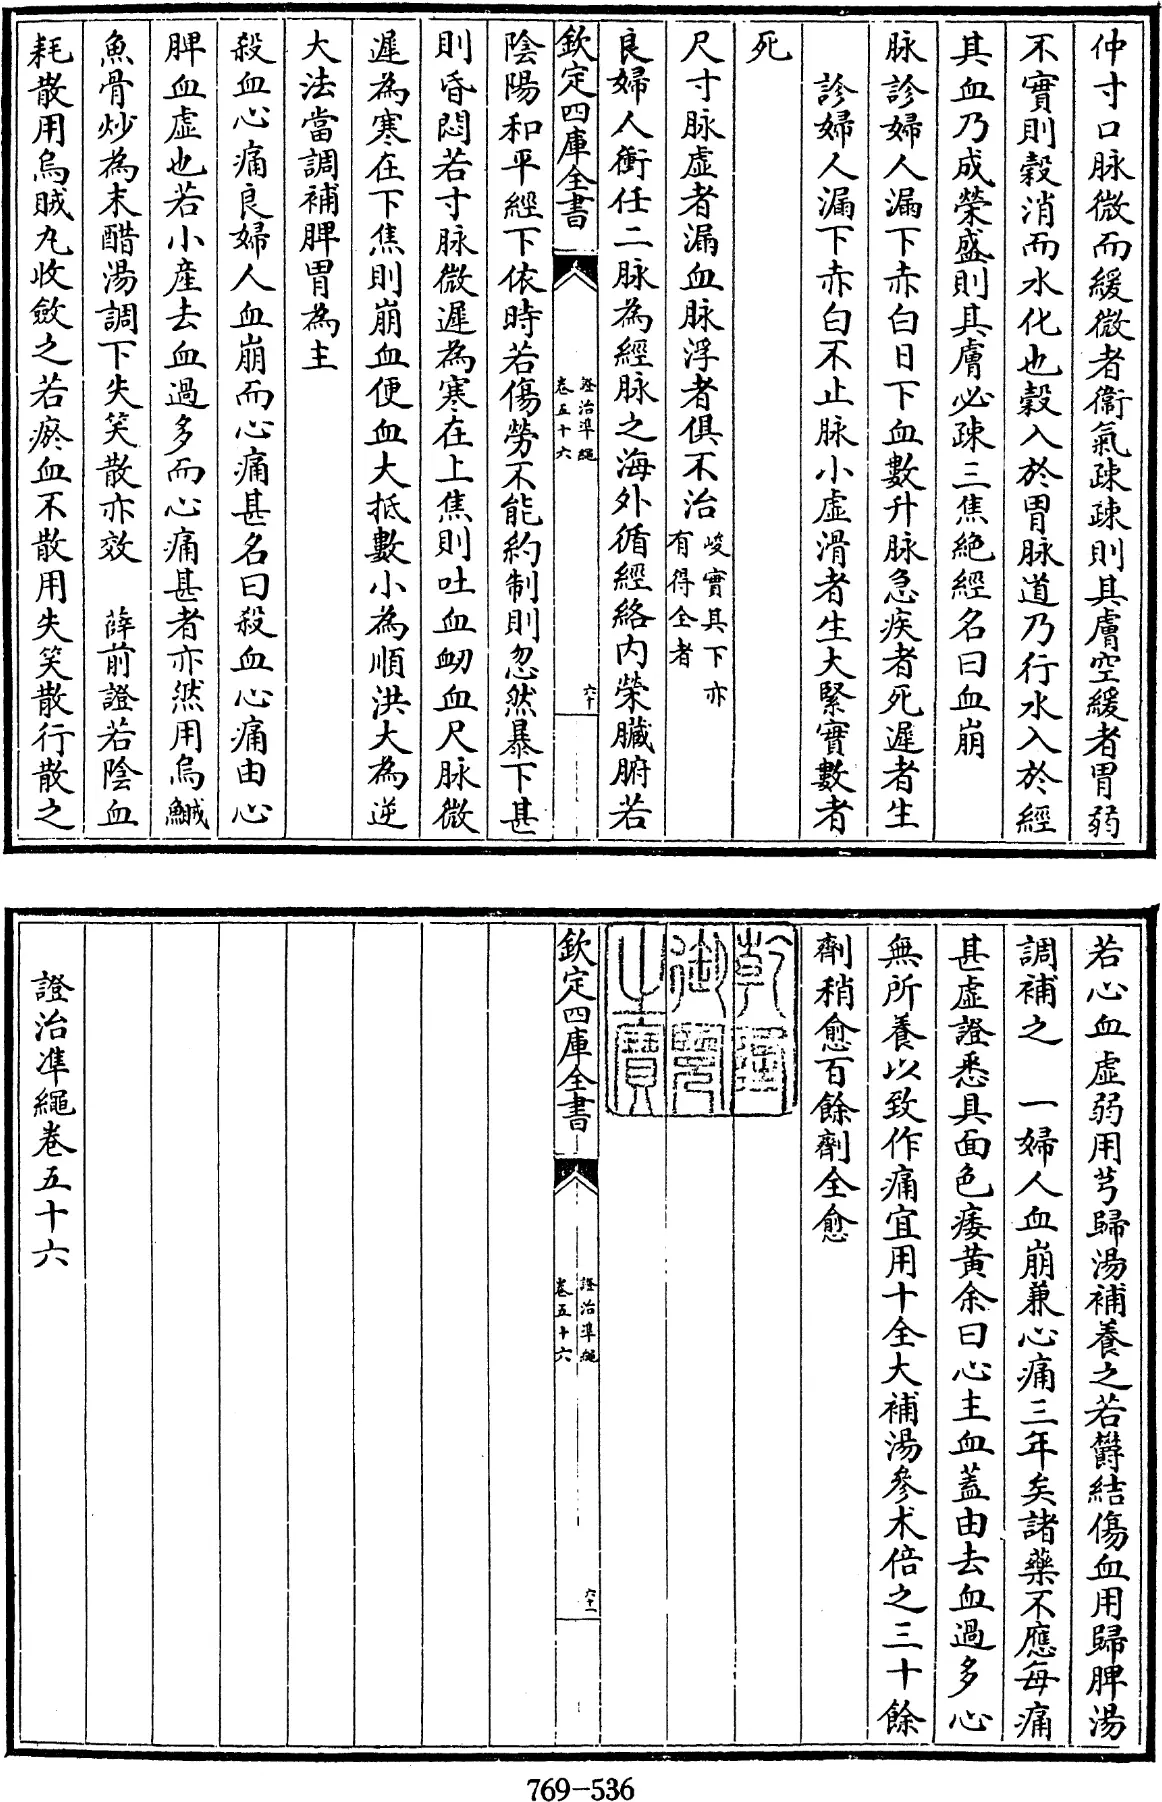 仲寸口脉微而緩微者衞氣疎疎則其膚空緩者胃弱
不實則穀消而水化也穀入於胃脉道乃行水入於經
其血乃成榮盛則其膚必疎三焦絶經名曰血崩
脉診婦人漏下赤白日下血數升脉急疾者死遲者生
診婦人漏下赤白不止脉小虛滑者生大緊實數者
死
尺寸脉虛者漏血脉浮者俱不治
峻實其下亦
有得全者
良婦人衝任二脉為經脉之海外循經絡内榮臟腑若
欽定四庫全書
證治準繩
卷五十六
六十
陰陽和平經下依時若傷勞不能約制則忽然暴下甚
則昏悶若寸脉微遲為寒在上焦則吐血衂血尺脉微
遲為寒在下焦則崩血便血大抵數小為順洪大為逆
大法當調補脾胃為主
殺血心痛良婦人血崩而心痛甚名曰殺血心痛由心
脾血虛也若小產去血過多而心痛甚者亦然用烏鰄
魚骨炒為末醋湯調下失笑散亦效　薛前證若陰血
耗散用烏賊丸收斂之若瘀血不散用失笑散行散之
若心血虛弱用芎歸湯補養之若欝結傷血用歸脾湯
調補之　一婦人血崩兼心痛三年矣諸藥不應每痛
甚虛證悉具面色痿黃余曰心主血蓋由去血過多心
無所養以致作痛宜用十全大補湯參术倍之三十餘
劑稍愈百餘劑全愈
乾隆御覽之寶
欽定四庫全書
證治準繩
卷五十六
六十一
證治準繩卷五十六
769-536